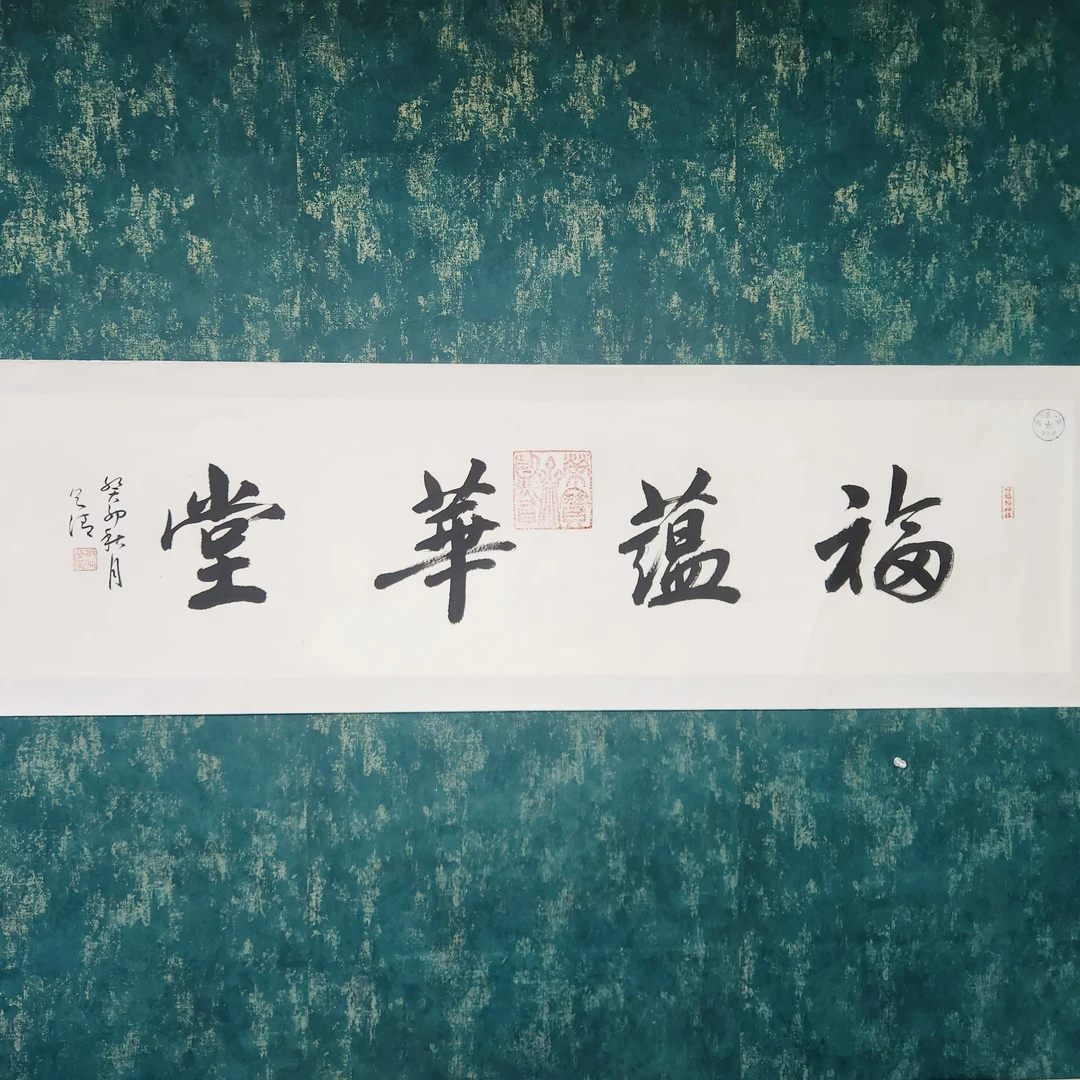 福蘊華堂
癸卯秋月